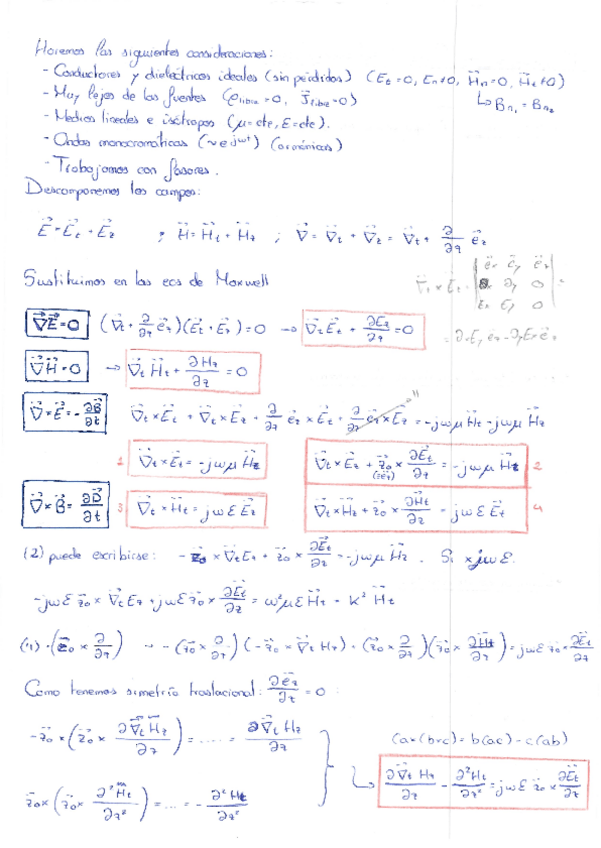 Haremos las siguientes consideraciones:
- Conductores y dieléctricos ideales (sin pérdidas) (Et = 0, En ≠ 0, Hn = 0, Ht ≠ 0)
↳ Bn₁ = Bn₂
- Muy lejos de las fuentes (ρlibre = 0, J⃗libre = 0)
- Medios lineales e isótropos (μ = cte, ε = cte).
- Ondas monocromáticas (~e^jωt) (armónicas)
- Trabajamos con fasores.
Descomponemos los campos:
E⃗ = E⃗t + E⃗z ; H⃗ = H⃗t + H⃗z ; ∇⃗ = ∇⃗t + ∇⃗z = ∇⃗t + ∂/∂z e⃗z
Sustituimos en las ecs de Maxwell
∇⃗t × E⃗t = | e⃗x e⃗y e⃗z | ∂x ∂y 0 | Ex Ey 0 | =
= ∂xEy e⃗z - ∂yEx e⃗z
∇⃗E⃗ = 0 (∇⃗t + ∂/∂z e⃗z)(E⃗t + E⃗z) = 0 → ∇⃗t E⃗t + ∂Ez/∂z = 0
∇⃗H⃗ = 0 → ∇⃗t H⃗t + ∂Hz/∂z = 0
∇⃗ × E⃗ = -∂B⃗/∂t ∇⃗t × E⃗t + ∇⃗t × E⃗z + ∂/∂z e⃗z × E⃗t + ∂/∂z e⃗z × E⃗z = -jωμ H⃗t - jωμ H⃗z
1 ∇⃗t × E⃗t = -jωμ H⃗z ∇⃗t × E⃗z + z⃗₀ × ∂E⃗t/∂z = -jωμ H⃗t 2
(≡e⃗z)
∇⃗ × B⃗ = ∂D⃗/∂t 3 ∇⃗t × H⃗t = jωε E⃗z ∇⃗t × H⃗z + z⃗₀ × ∂H⃗t/∂z = jωε E⃗t 4
(2) puede escribirse: -z⃗₀ × ∇⃗t Ez + z⃗₀ × ∂E⃗t/∂z = -jωμ H⃗t . Si × jωε
-jωε z⃗₀ × ∇⃗t Ez + jωε z⃗₀ × ∂E⃗t/∂z = ω²με H⃗t = k² H⃗t
(4) · (z⃗₀ × ∂/∂z) → (z⃗₀ × ∂/∂z)(-z⃗₀ × ∇⃗t Hz) + (z⃗₀ × ∂/∂z)(z⃗₀ × ∂H⃗t/∂z) = jωε z⃗₀ × ∂E⃗t/∂z
Como tenemos simetría traslacional: ∂e⃗z/∂z = 0 :
-z⃗₀ × (z⃗₀ × ∂∇⃗t Hz/∂z) = ..... = ∂∇⃗t Hz/∂z
(a×(b×c) = b(ac) - c(ab)
z⃗₀ × (z⃗₀ × ∂²H⃗t/∂z²) = ... = -∂²Ht/∂z²
↳ ∂∇⃗t Hz/∂z - ∂²Ht/∂z² = jωε z⃗₀ × ∂E⃗t/∂z